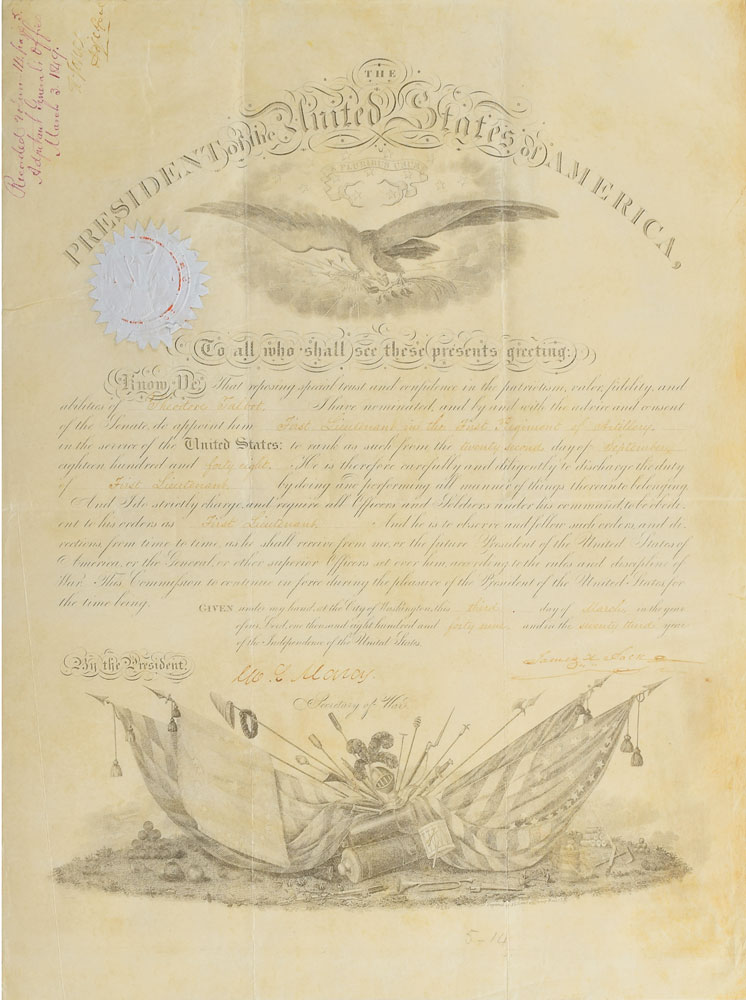 Recorded
Adjutant General's Office
March 3. 1849.
THE
PRESIDENT of the United States of AMERICA,
E PLURIBUS UNUM
To all who shall see these presents greeting:
Know Ye, That reposing special trust and confidence in the patriotism, valor, fidelity, and
abilities of Theodore Talbot I have nominated, and by and with the advice and consent
of the Senate, do appoint him First Lieutenant in the First Regiment of Artillery
in the service of the United States: to rank as such from the twenty second day of September
eighteen hundred and forty eight. He is therefore carefully and diligently to discharge the duty
of First Lieutenant by doing and performing all manner of things thereunto belonging.
And I do strictly charge, and require all Officers and Soldiers under his command, to be obedi-
ent to his orders as First Lieutenant And he is to observe and follow such orders, and di-
rections from time to time, as he shall receive from me, or the future President of the United States of
America, or the General, or other superior Officers set over him, according to the rules and discipline of
War. This Commission to continue in force during the pleasure of the President of the United States, for
the time being.
GIVEN under my hand, at the City of Washington, this third day of March in the year
of our Lord, one thousand eight hundred and forty nine and in the seventy third year
of the Independence of the United States.
By the President.
James K Polk
W L Marcy
Secretary of War.
5-14